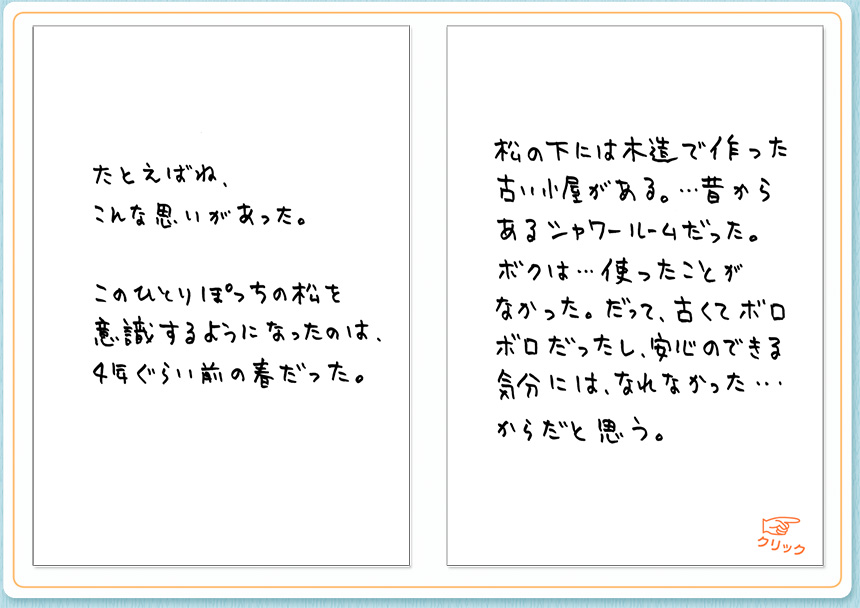 たとえばね、
こんな思いがあった。
このひとりぽっちの松を
意識するようになったのは、
4年ぐらい前の春だった。
松の下には木造で作った
古い小屋がある。…昔から
あるシャワールームだった。
ボクは…使ったことが
なかった。だって、古くてボロ
ボロだったし、安心のできる
気分には、なれなかった…
からだと思う。
クリック